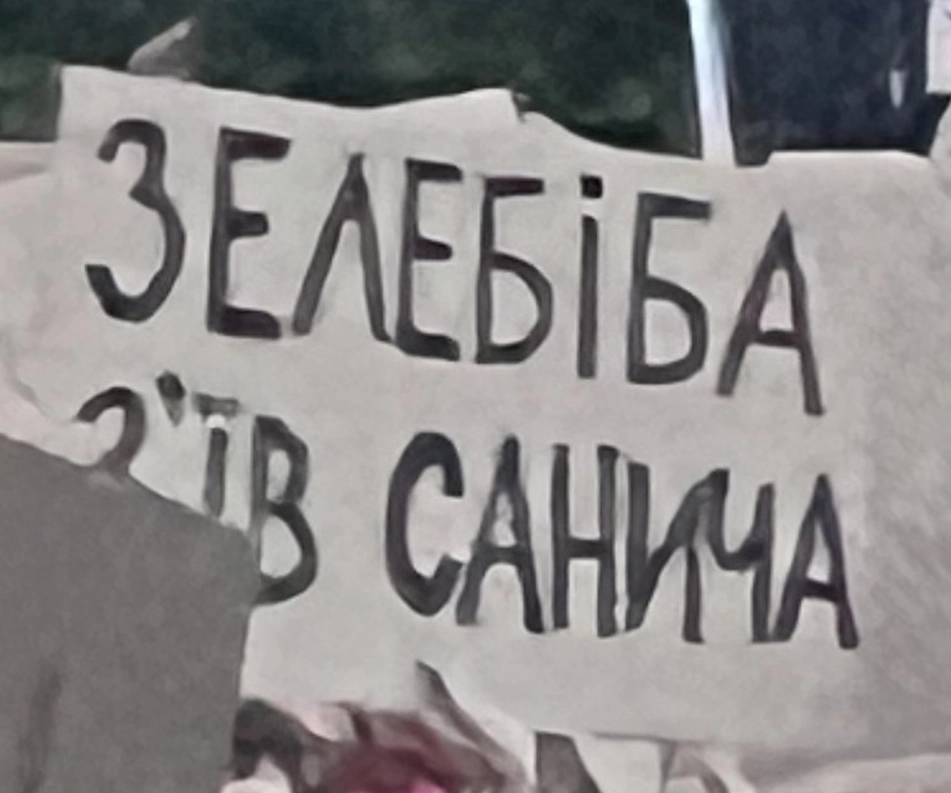 ЗЕЛЕБІБА
З'ЇВ САНИЧА